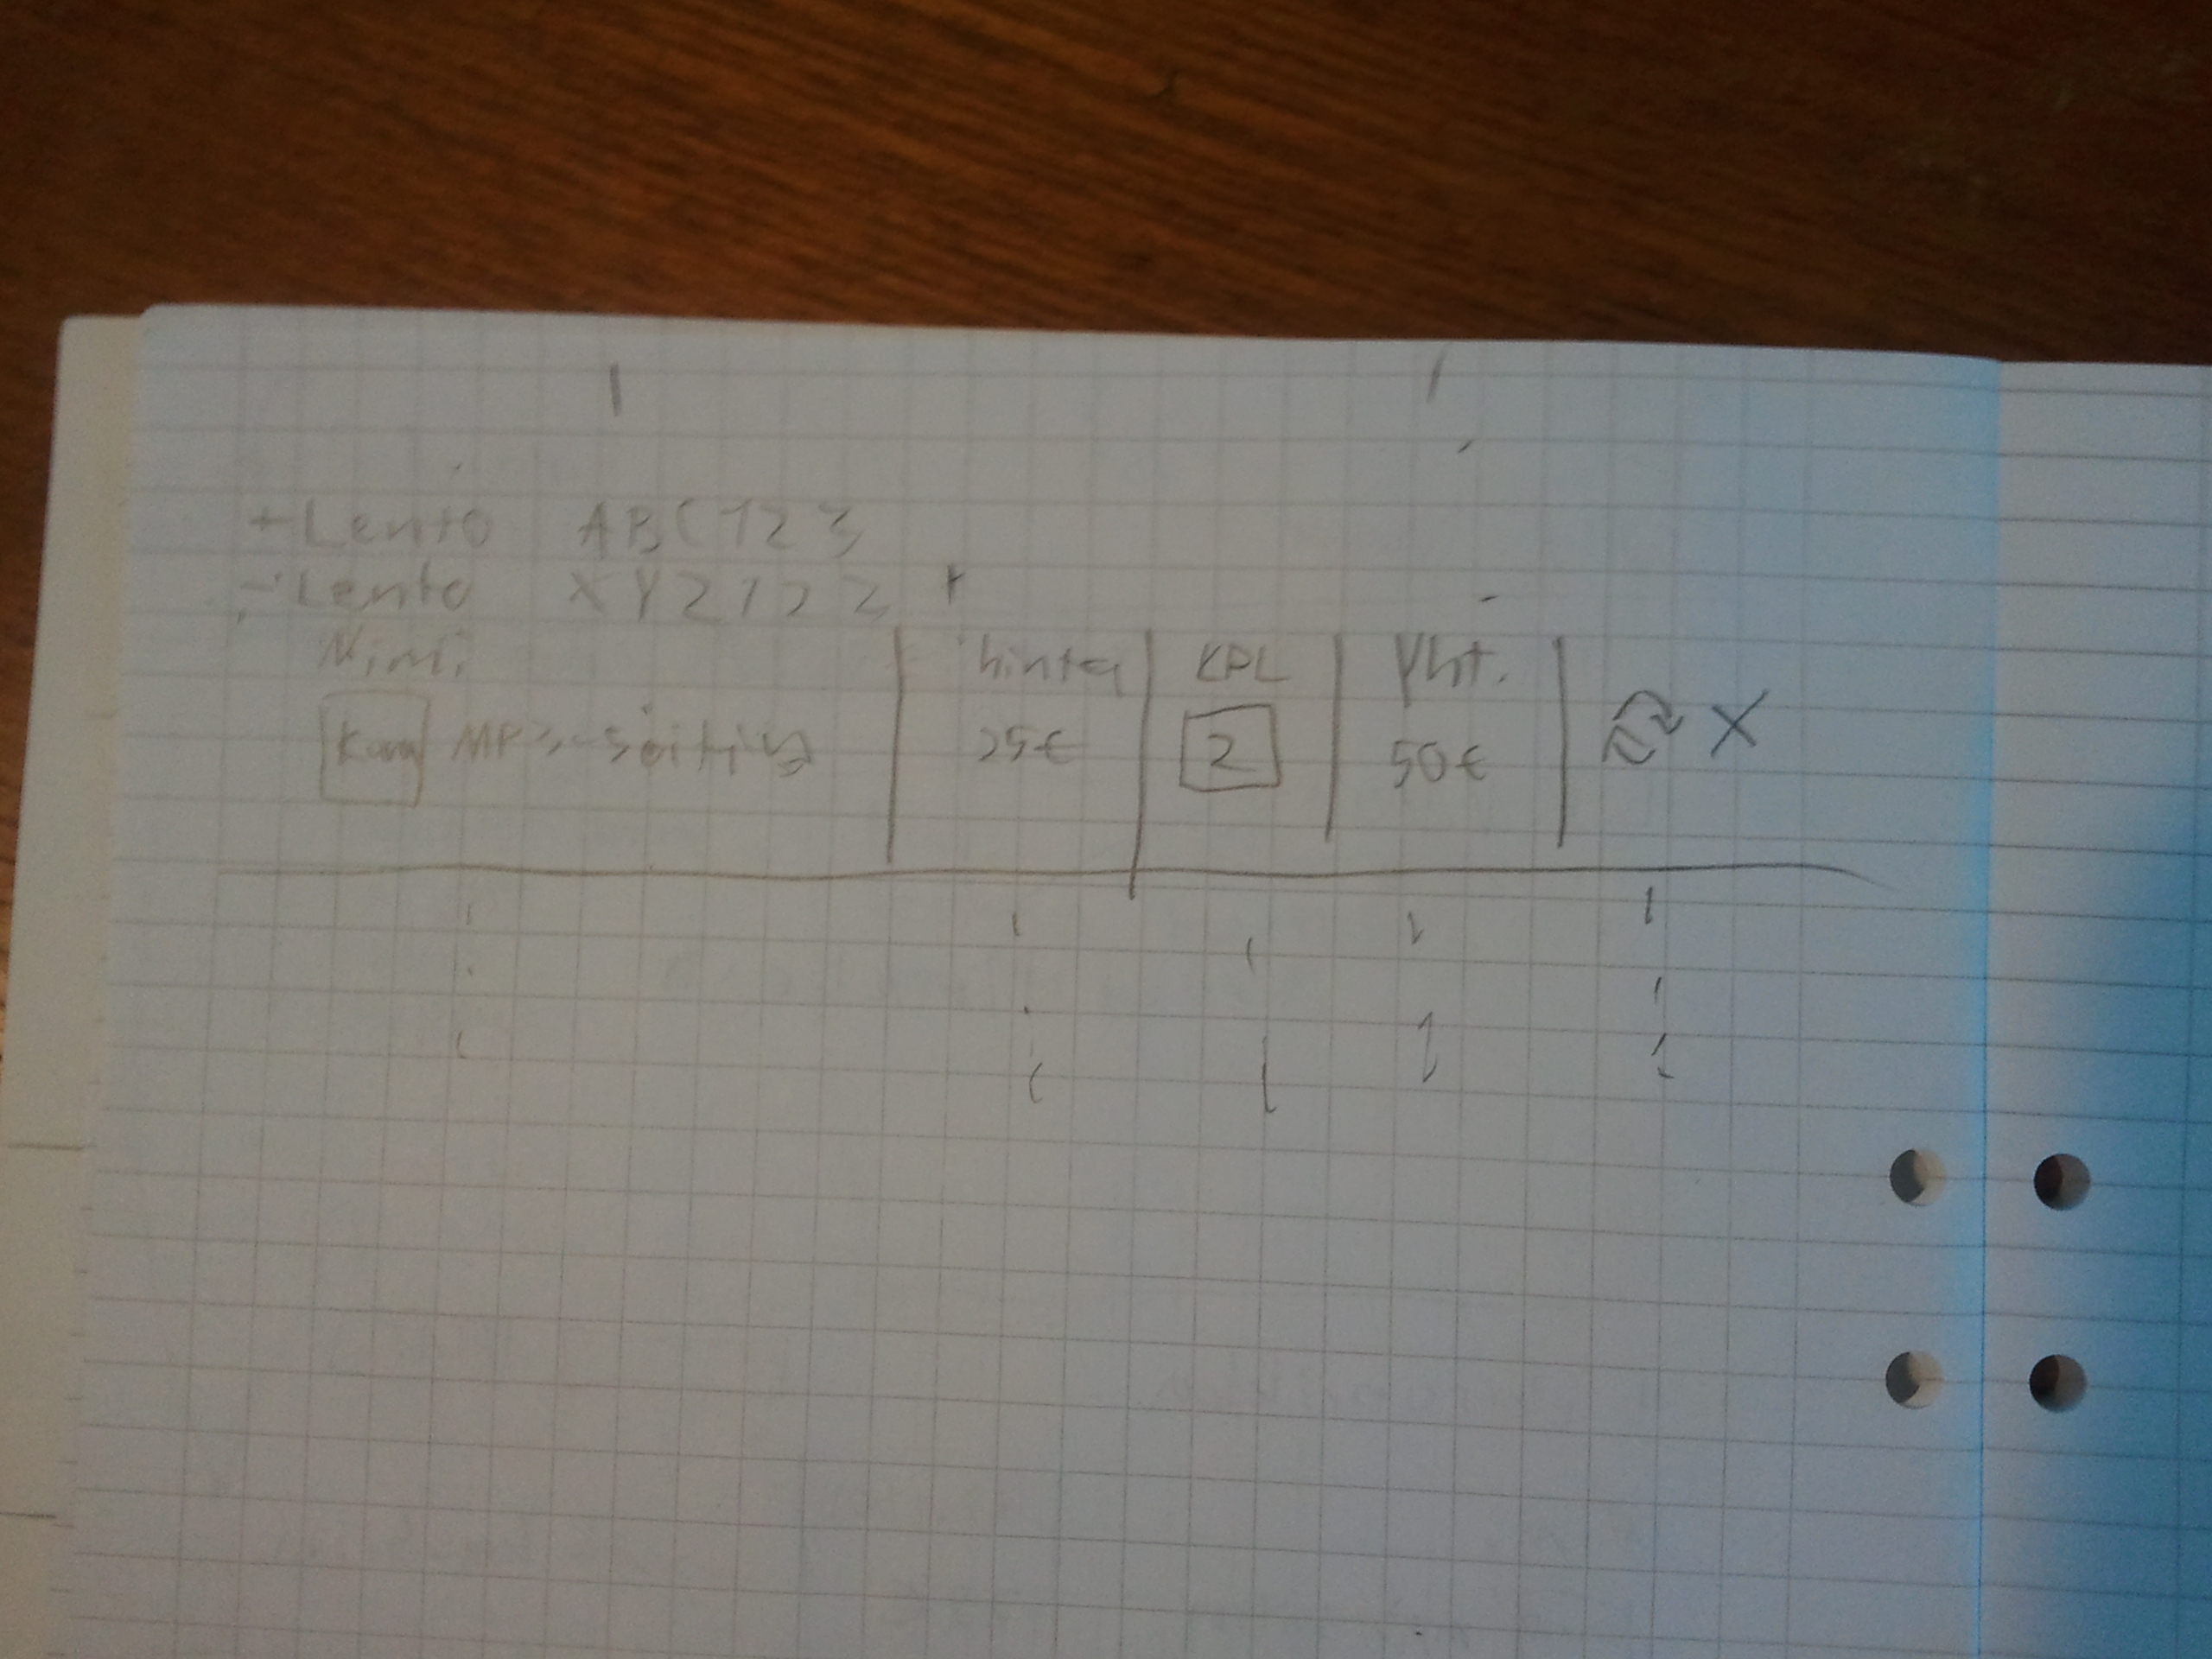 + Lento ABC123
- Lento XYZ122
Nimi hinta KPL Yht.
Kuva MP3-soitin 25€ 2 50€ X